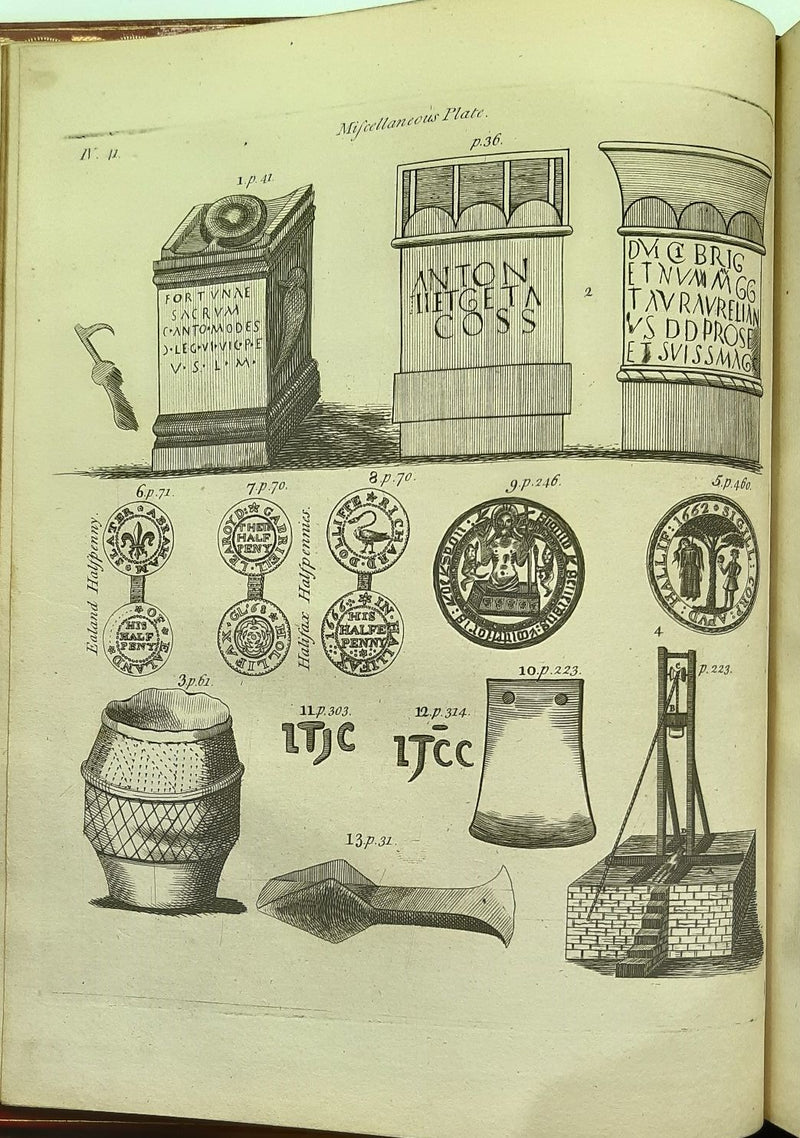 Miſcellaneous Plate.
IV. 41.
1.p.41.
p.36.
FORTVNAE
SACRVM
C·ANTO·MODES
Ɔ·LEG·VI·VIC·P·E
V·S·L·M·
ANTON
IIIETGETA
COSS
2
DVI CI BRIG
ETNVMM GG
TAVRAVRELIAN
VS DDPROSE
ET SVISSMAG
6.p.71.
7.p.70.
8.p.70.
9.p.246.
5.p.460.
Ealand Halfpenny.
ABRAHAM SLATER
OF EALAND
HIS
HALF
PENY
GABRIELL LEAROYD
THEIR
HALF
PENY
HOLLIFAX·GL'68
Halifax Halfpennies.
RICHARD·DOLLIFFE
IN HALLIFAX 1666
HIS
HALFE
PENNY
SIGILL: CORP: APVD: HALLIF: 1662
3.p.61.
11.p.303.
12.p.314.
10.p.223.
4
p.223.
C
B
A
13.p.31.